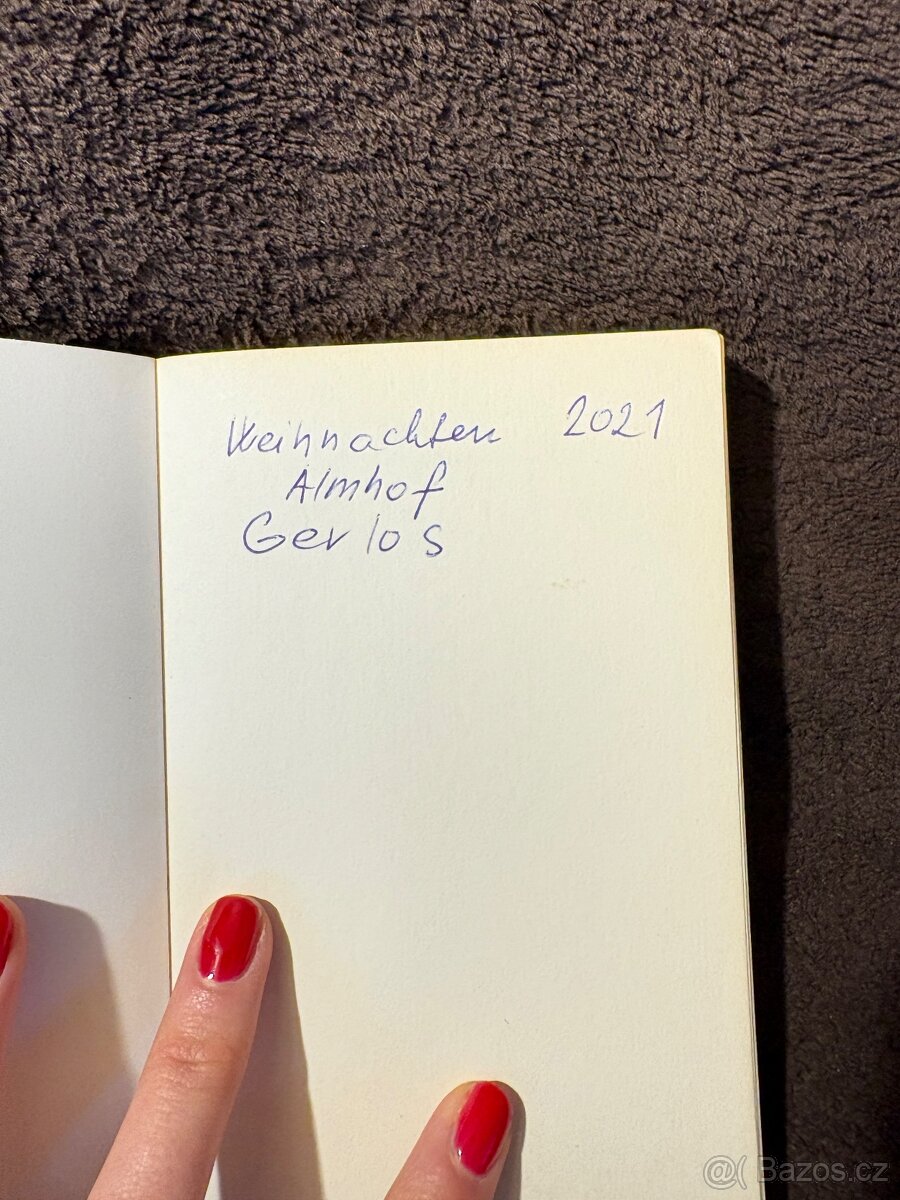 Weihnachten 2021
Almhof
Gerlos
@( Bazos.cz